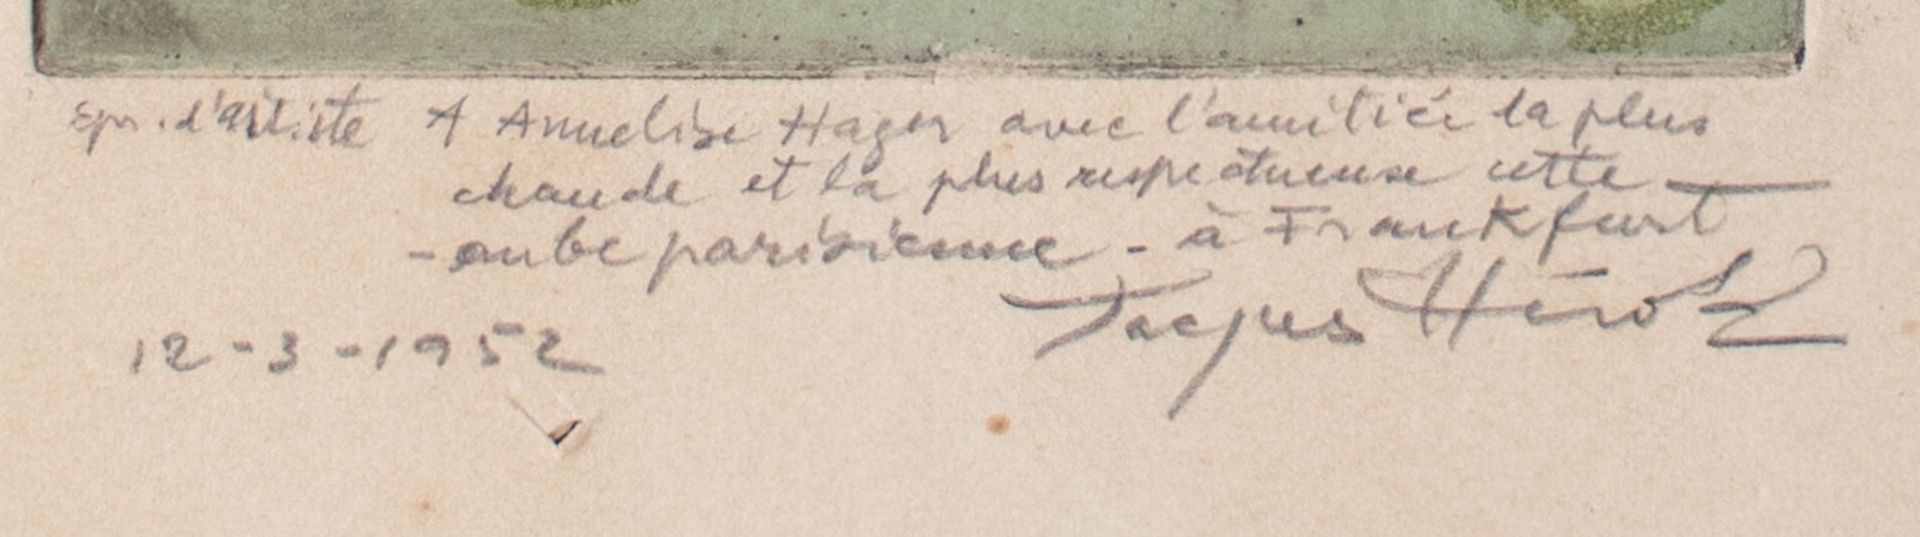 Epr. d'artiste A Annelise Hager avec l'amitié la plus
chaude et la plus respectueuse cette —
- aube parisienne - à Frankfurt
Jacques Hérold
12-3-1952